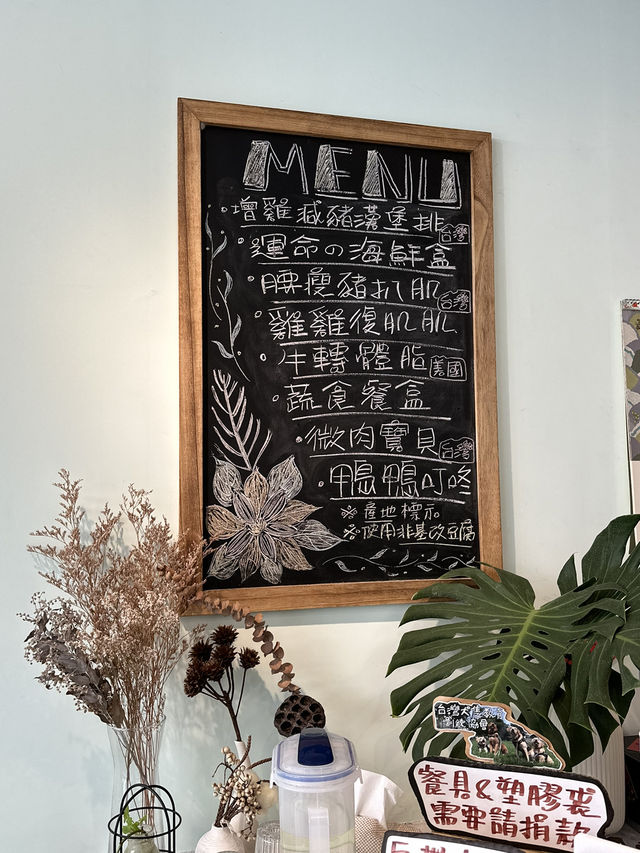 MENU
·增雞減豬漢堡排 台灣
·運命の海鮮盒
·腰瘦豬扒肌 台灣
·雞雞復肌肌
·牛轉體脂 美國
·蔬食餐盒
·微肉寶貝 台灣
·鴨鴨叮咚
※產地標示
※使用非基改豆腐
台灣犬
協會
餐具&塑膠袋
需要請捐款